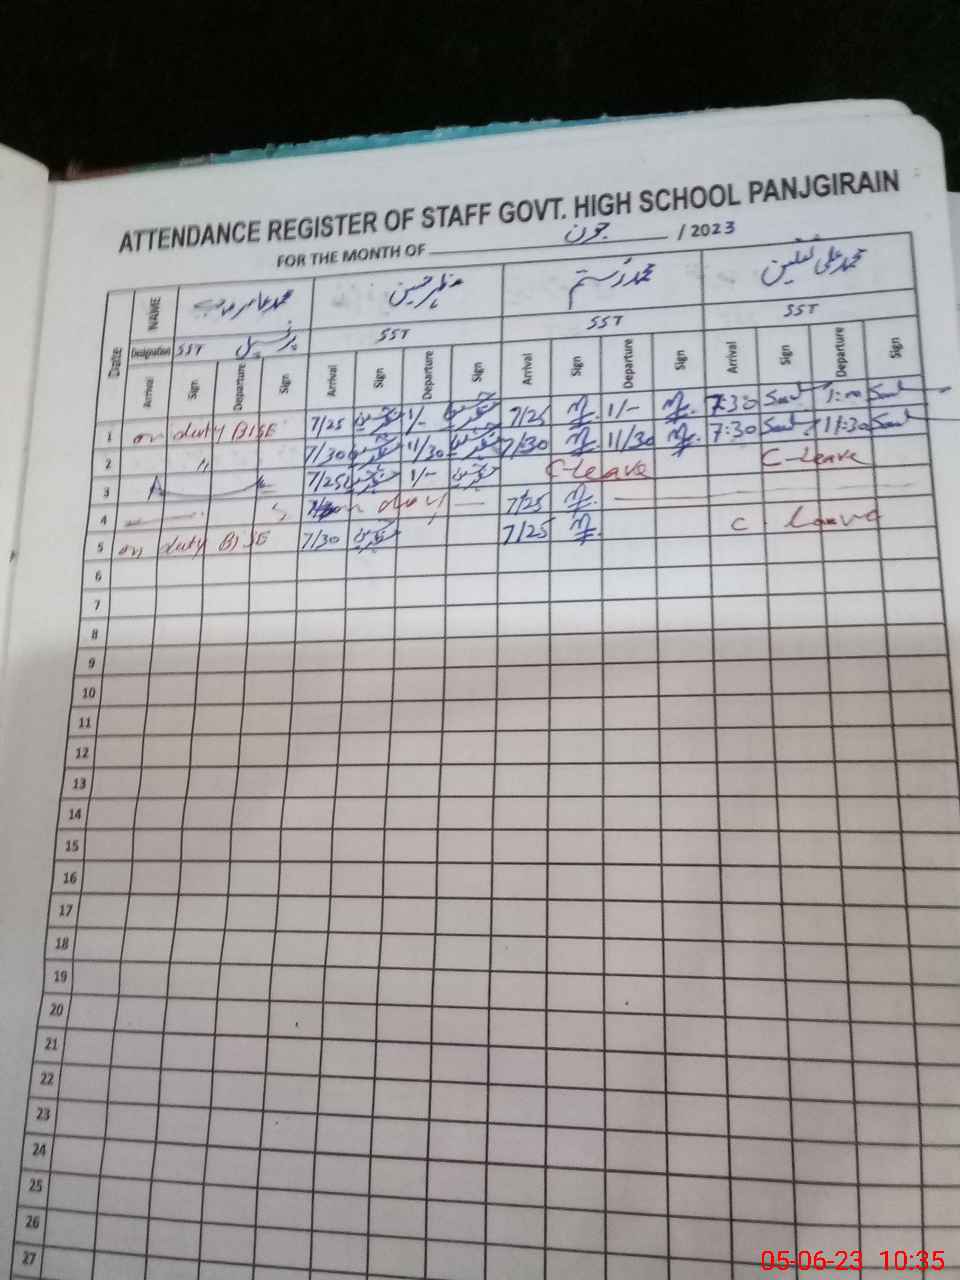 ATTENDANCE REGISTER OF STAFF GOVT. HIGH SCHOOL PANJGIRAIN
FOR THE MONTH OF جون / 2023
NAME محمد عامر مظہر حسین محمد رستم محمد علی ثقلین
Designation SST پرنسپل SST SST SST
Date Arrival Sign Departure Sign Arrival Sign Departure Sign Arrival Sign Departure Sign Arrival Sign Departure Sign
1 on duty BISE 7/25 1/- 7/25 1/- 7:30 1:00
2 〃 7/30 11/30 7/30 11/30 7:30 11:30
3 7/25 1/- C-leave C-leave
4 on duty 7/25
5 on duty BISE 7/30 7/25 C leave
6
7
8
9
10
11
12
13
14
15
16
17
18
19
20
21
22
23
24
25
26
27
05-06-23 10:35